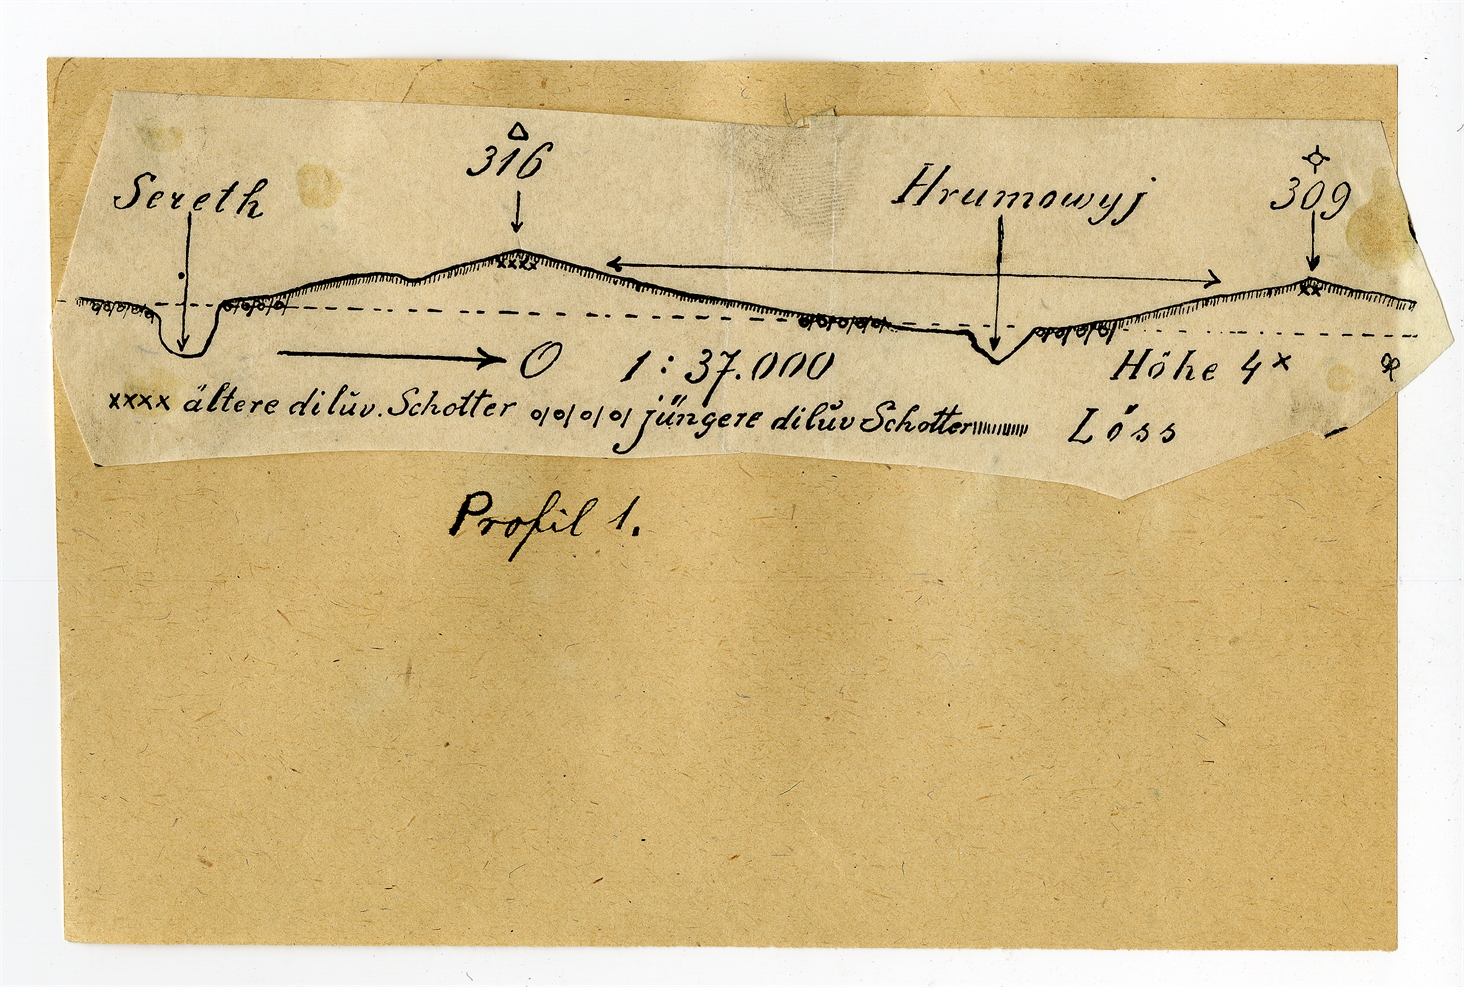 316
309
Sereth
Hrumowyj
O 1:37.000 Höhe 4x
xxxx ältere diluv. Schotter o/o/o/o/ jüngere diluv Schotter Löss
Profil 1.